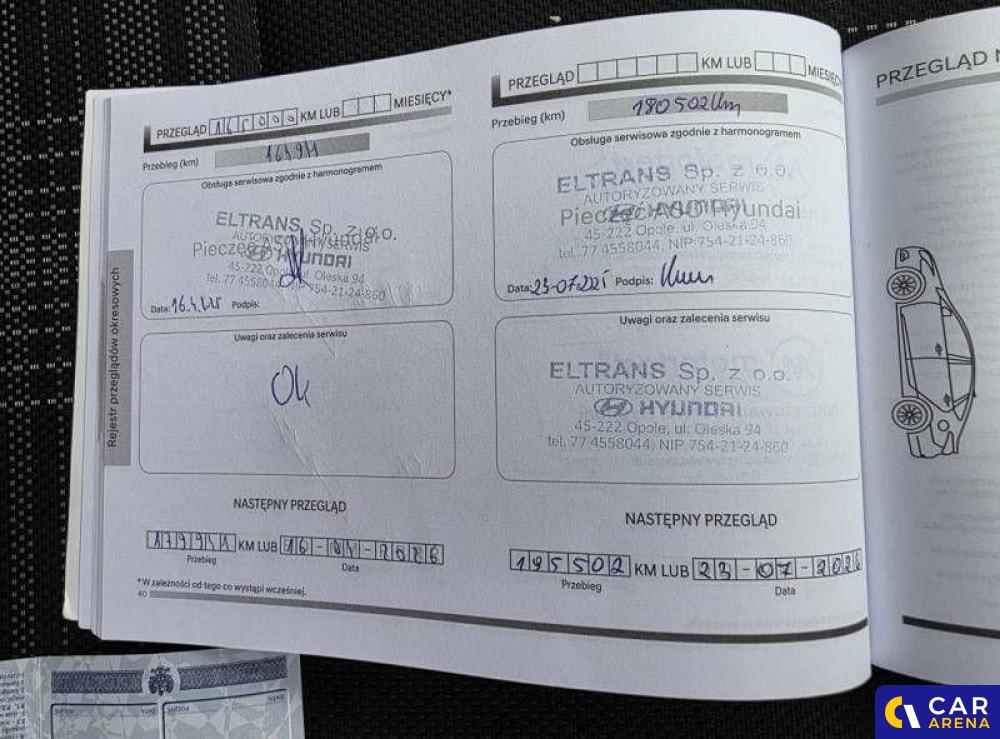 PRZEGLĄD 165000 KM LUB MIESIĘCY*
Przebieg (km) 164941
Obsługa serwisowa zgodnie z harmonogramem
ELTRANS Sp. z o.o.
AUTORYZOWANY SERWIS
Pieczęć ASO Hyundai
HYUNDAI
45-222 Opole, ul. Oleska 94
tel. 77 4558044, NIP 754-21-24-860
Data: Podpis:
Uwagi oraz zalecenia serwisu
Ok
NASTĘPNY PRZEGLĄD
179941 KM LUB 16-04-2026
Przebieg Data
*W zależności od tego co wystąpi wcześniej.
40
Rejestr przeglądów okresowych
PRZEGLĄD KM LUB MIESIĘCY
Przebieg (km) 180502km
Obsługa serwisowa zgodnie z harmonogramem
ELTRANS Sp. z o.o.
AUTORYZOWANY SERWIS
Pieczęć ASO Hyundai
HYUNDAI
45-222 Opole, ul. Oleska 94
tel. 77 4558044, NIP 754-21-24-860
Data: 23-07-2025 Podpis:
Uwagi oraz zalecenia serwisu
ELTRANS Sp. z o.o.
AUTORYZOWANY SERWIS
HYUNDAI
45-222 Opole, ul. Oleska 94
tel. 77 4558044, NIP 754-21-24-860
NASTĘPNY PRZEGLĄD
195502 KM LUB 23-07-2026
Przebieg Data
PRZEGLĄD
CAR
ARENA